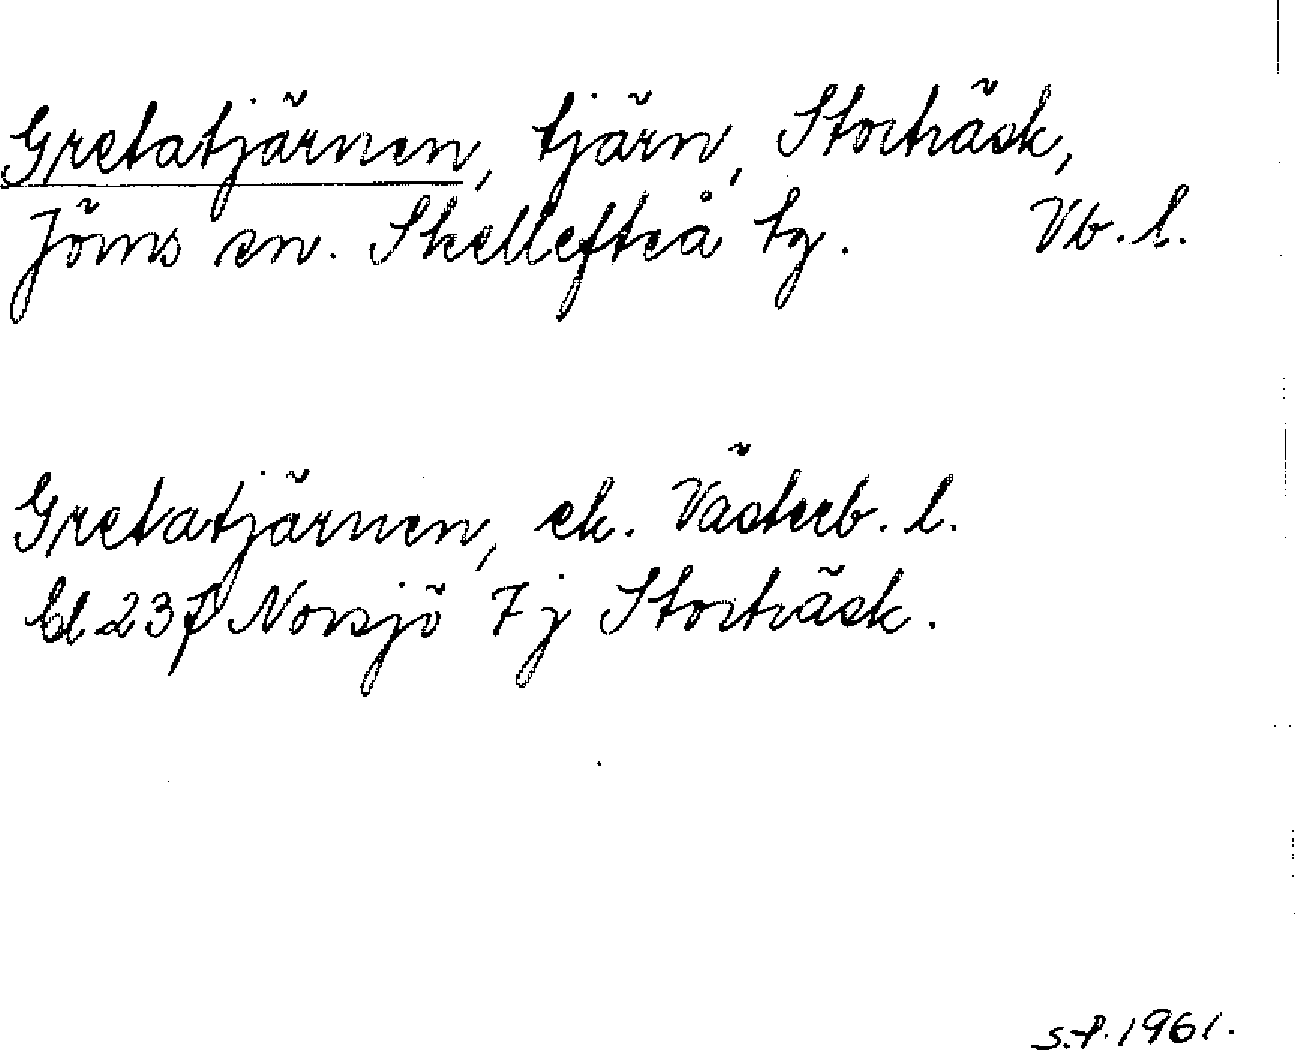 Gretatjärnen, tjärn, Storträsk,
Jörns sn. Skellefteå tg. Vb. l.
Gretatjärnen, ek. Västerb. l.
bl 23 f Norsjö 7j Storträsk.
S.f. 1961.